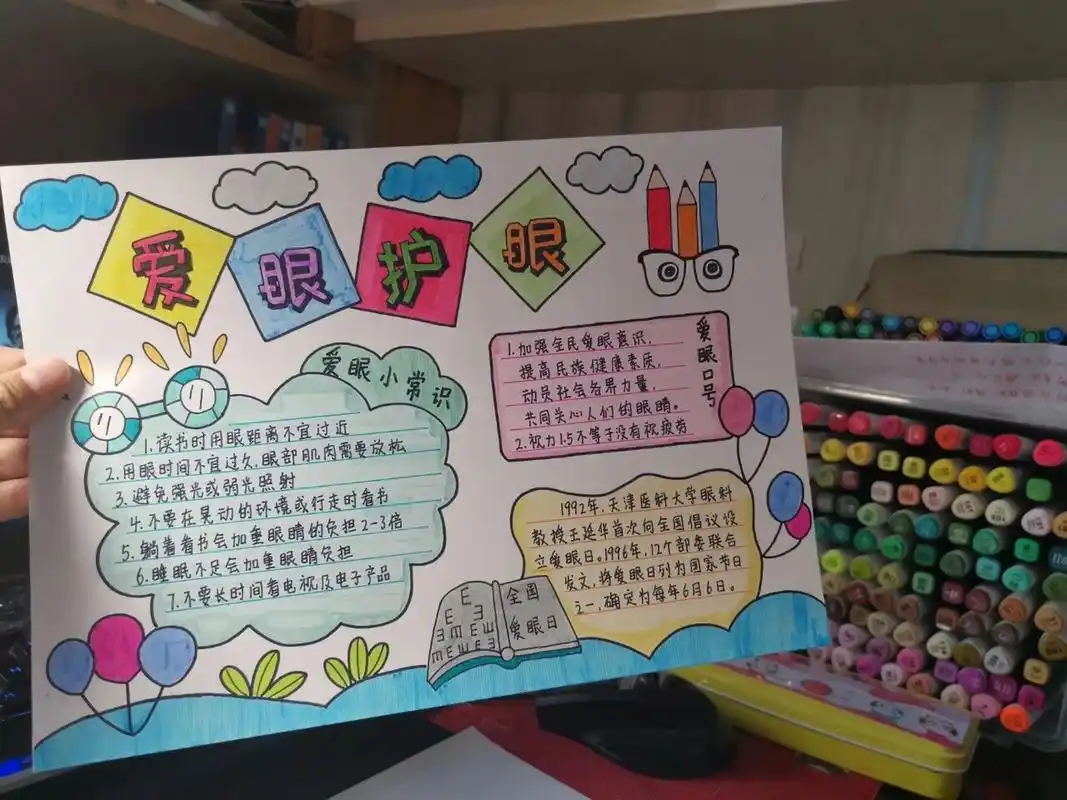 爱眼护眼
爱眼小常识
1.读书时用眼距离不宜过近
2.用眼时间不宜过久.眼部肌肉需要放松
3.避免强光或弱光照射
4.不要在晃动的环境或行走时看书
5.躺着看书会加重眼睛的负担2-3倍
6.睡眠不足会加重眼睛负担
7.不要长时间看电视及电子产品
爱眼口号
1.加强全民爱眼意识,
提高民族健康素质,
动员社会各界力量,
共同关心人们的眼睛。
2.视力1.5不等于没有视疲劳
1992年,天津医科大学眼科
教授王延华首次向全国倡议设
立爱眼日。1996年,12个部委联合
发文,将爱眼日列为国家节日
之一,确定为每年6月6日。
全国
爱眼日
E
E Ǝ
Ǝ M E W
M E W E Ǝ